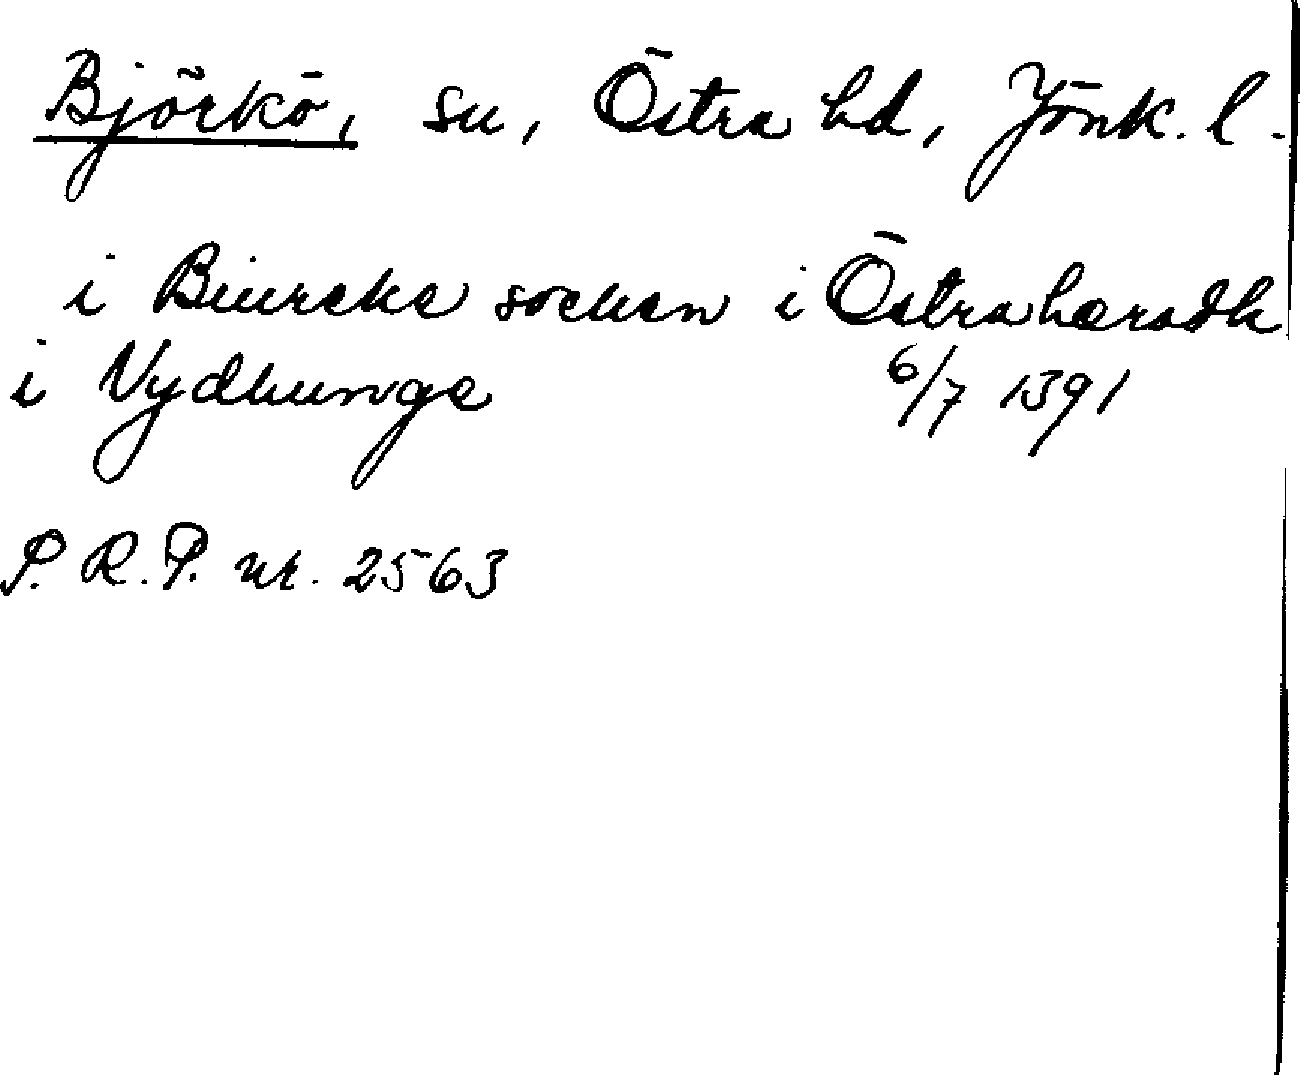 Björkö, sn, Östra hd, Jönk. l.
i Biurcke socken i Östrahæradh
i Vydhunge 6/7 1391
S. R. P. nr. 2563